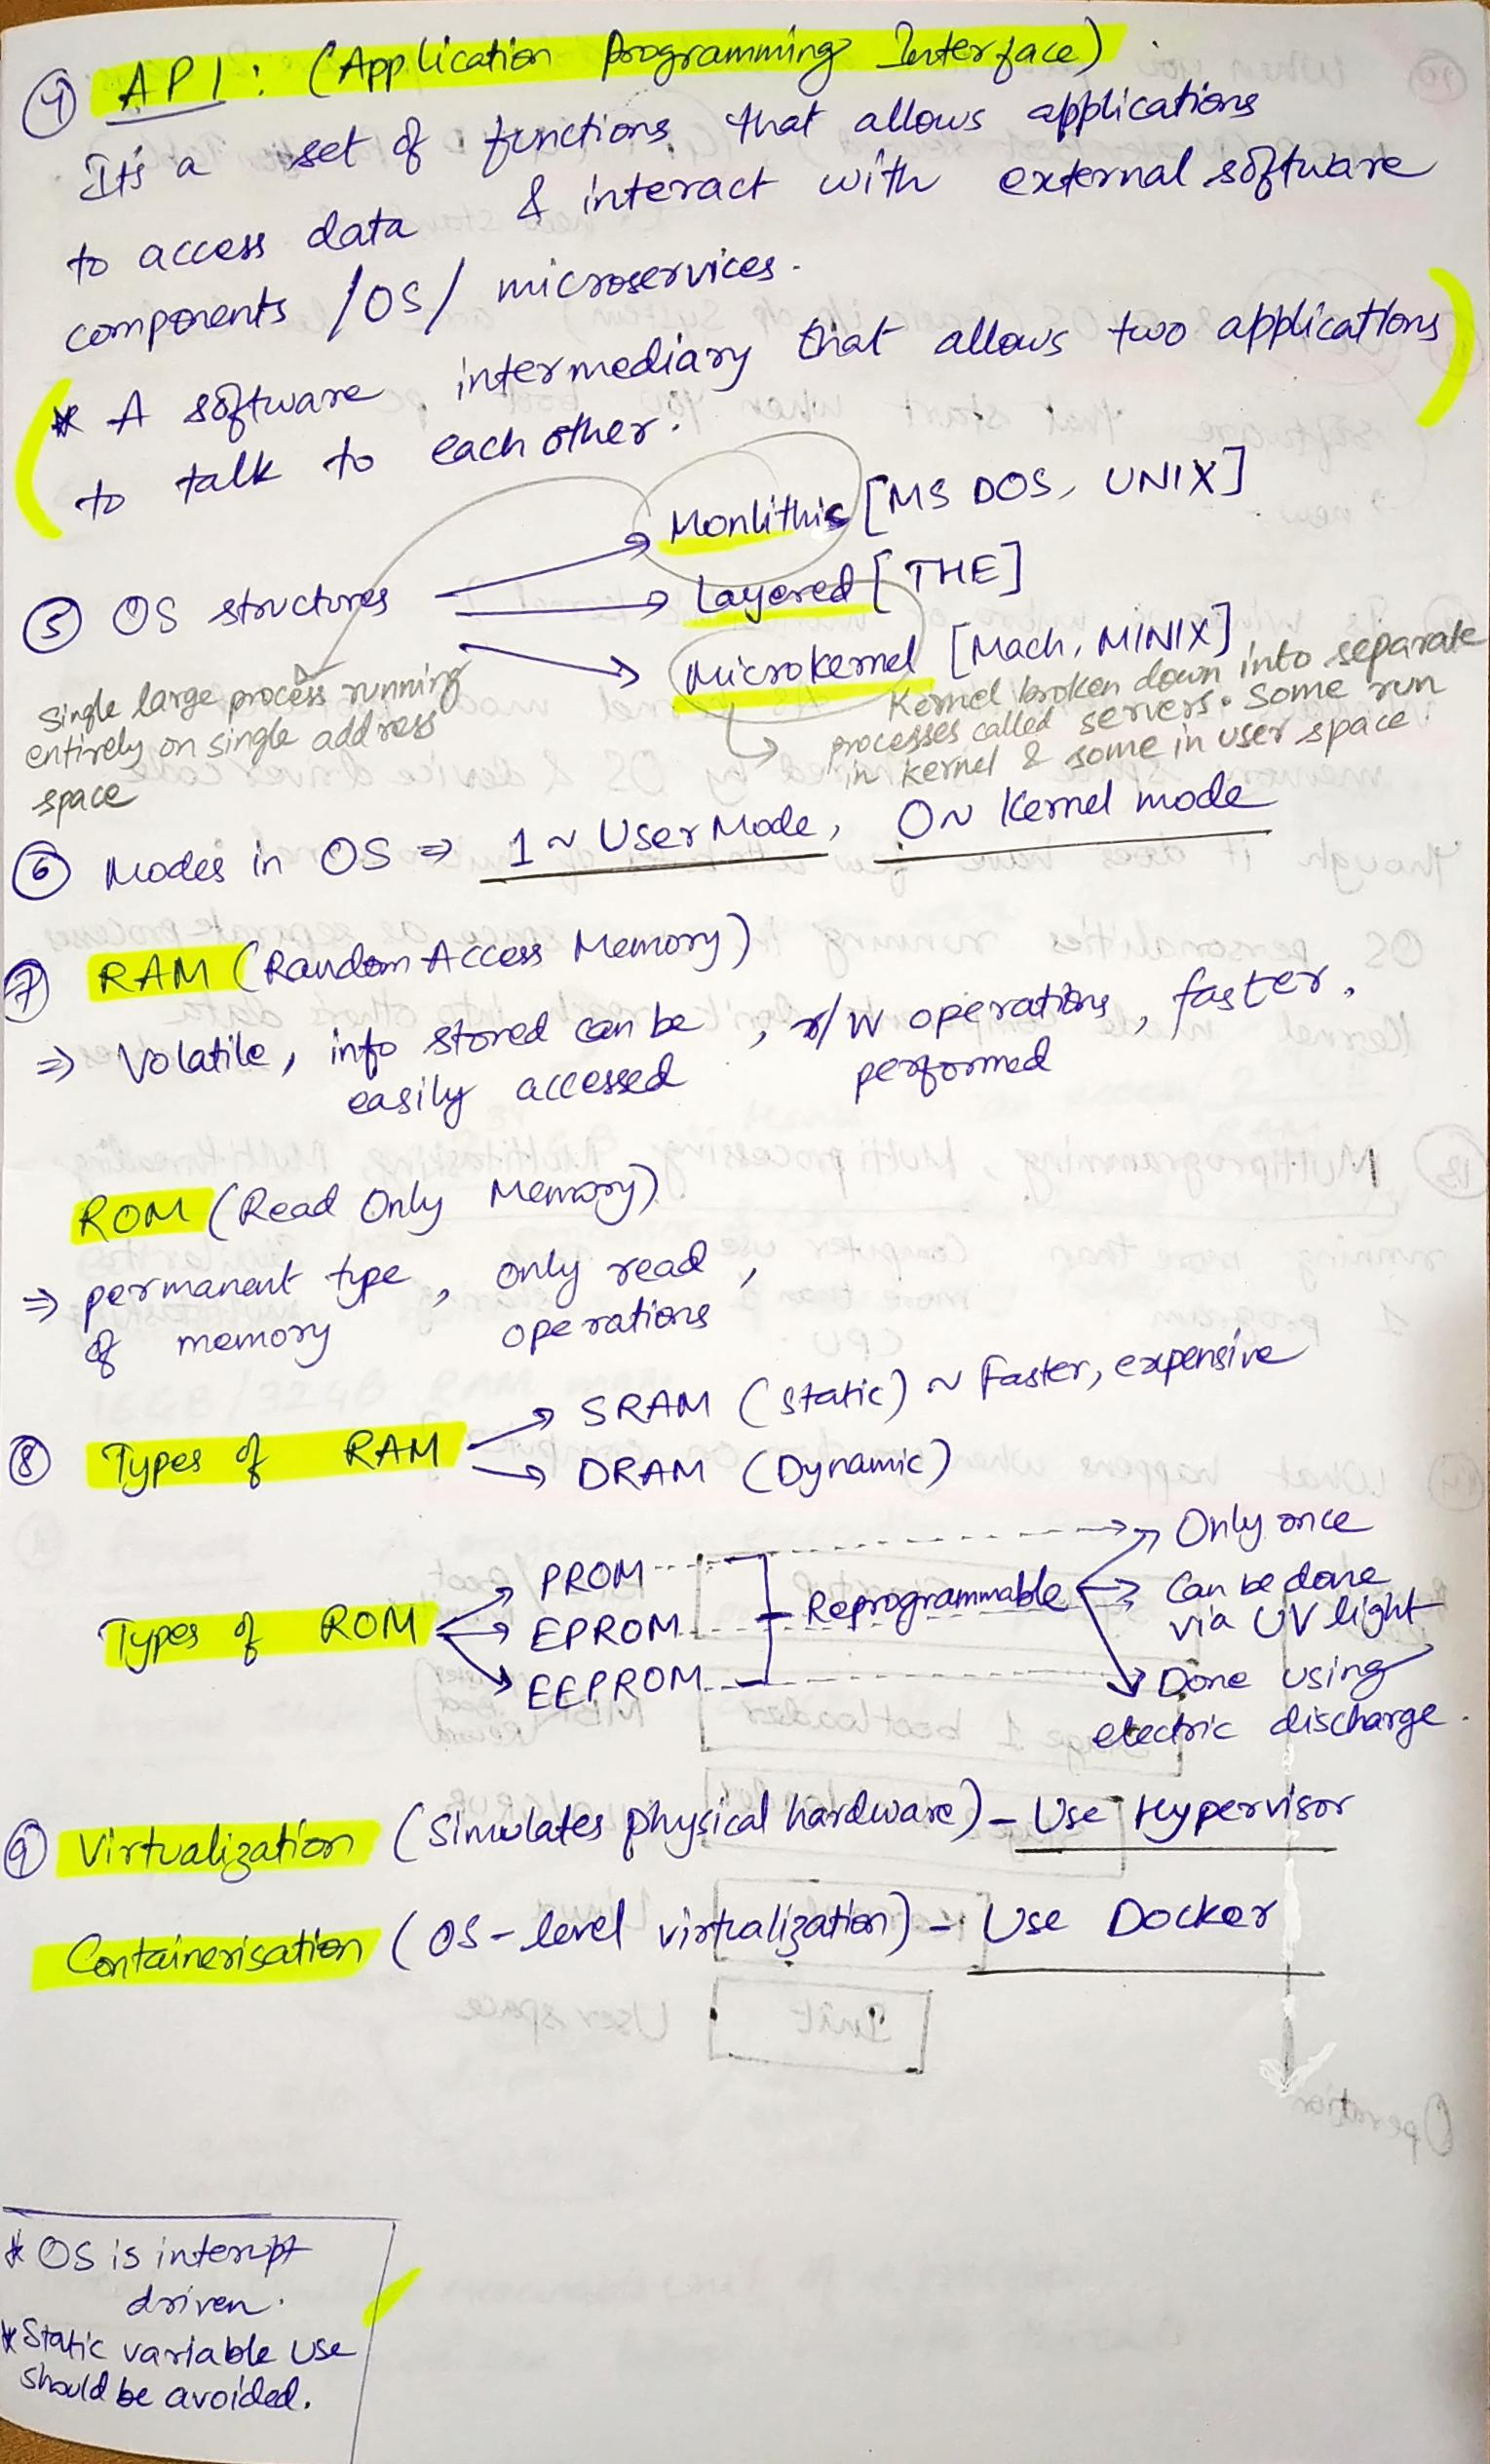 ④ API : (Application Programming Interface)
It's a set of functions that allows applications
to access data & interact with external software
components /OS/ microservices.
* A software intermediary that allows two applications
to talk to each other.
⑤ OS structures
Monlithic [MS DOS, UNIX]
Layered [THE]
Microkernel [Mach, MINIX]
Single large process running
entirely on single address
space
Kernel broken down into separate
processes called servers. Some run
in kernel & some in user space.
⑥ Modes in OS ⇒ 1 ~ User Mode, 0 ~ Kernel mode
⑦ RAM (Random Access Memory)
⇒ Volatile, info stored can be , r/W operations, faster.
easily accessed performed
ROM (Read Only Memory)
⇒ permanent type , only read ,
of memory operations
⑧ Types of RAM
→ SRAM (Static) ~ Faster, expensive
→ DRAM (Dynamic)
Types of ROM
PROM
EPROM
EEPROM
Reprogrammable
Only once
Can be done
via UV light
Done using
electric discharge.
⑨ Virtualization (Simulates physical hardware) - Use Hypervisor
Containerisation (OS-level virtualization) - Use Docker
* OS is interupt
driven.
* Static variable use
should be avoided.